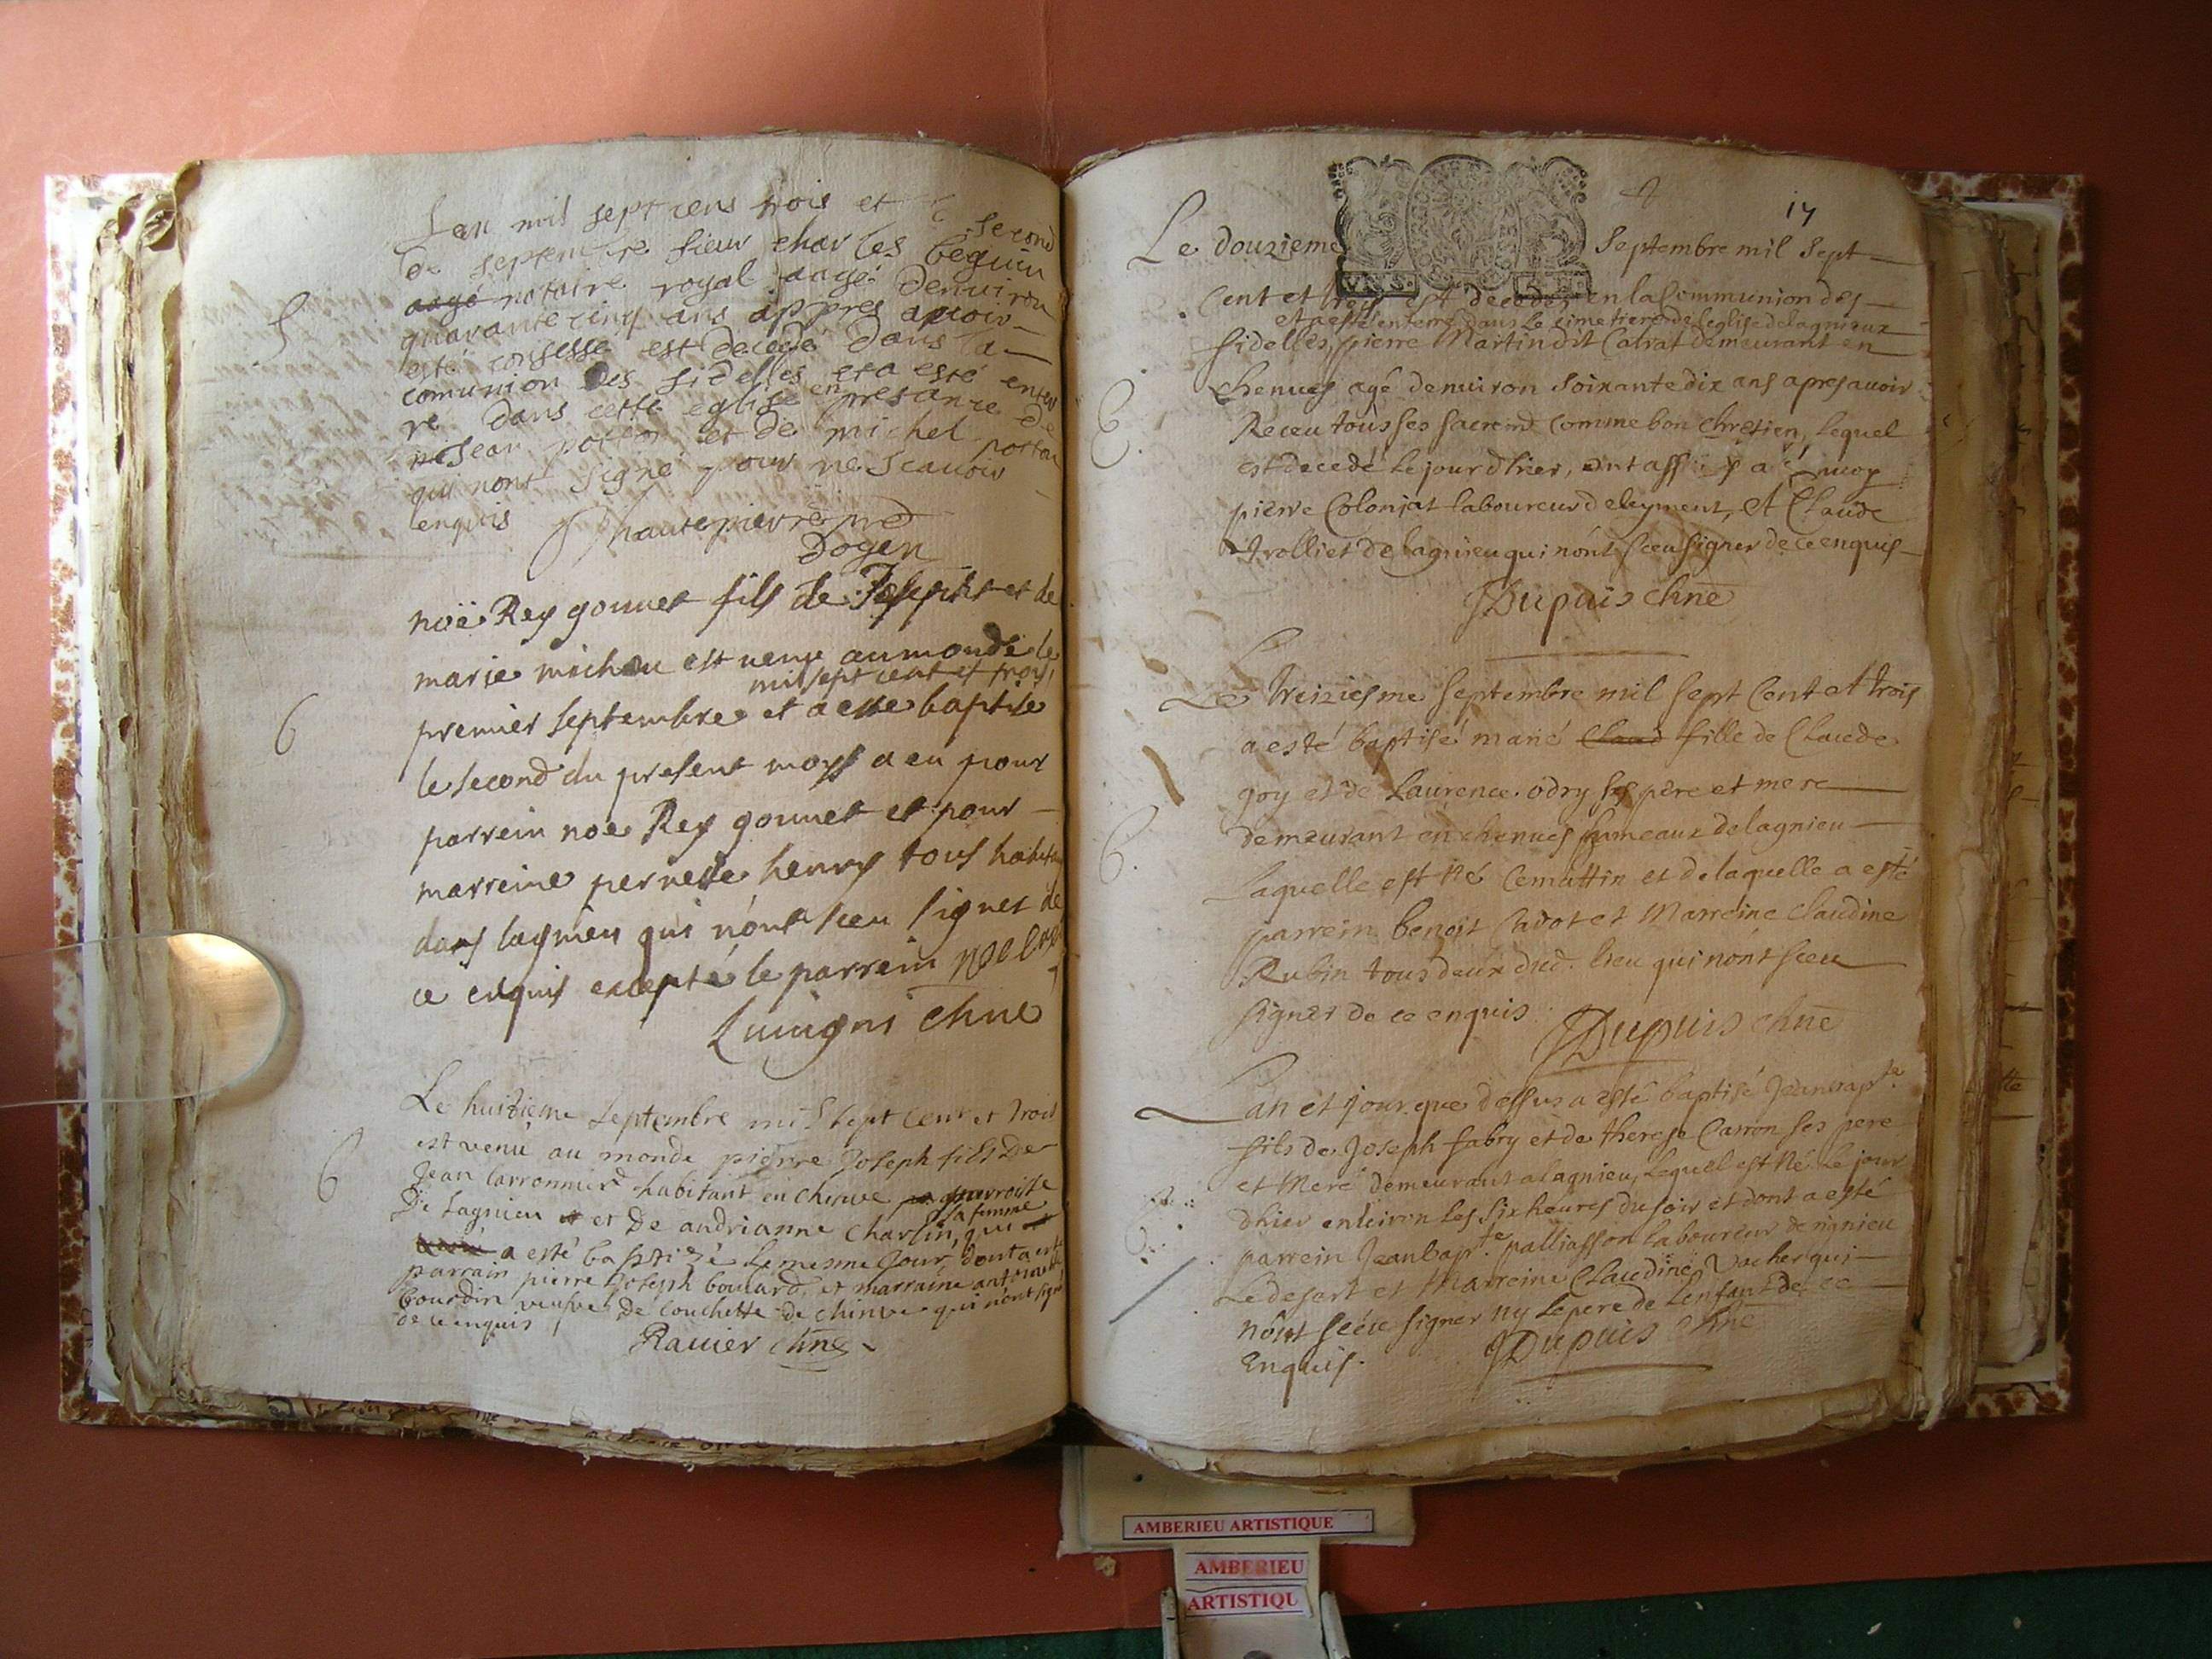 Lan mil sept cens trois et le second
de septembre sieur charles beguin
aagé notaire royal aagé denuiron
quarante cinq ans appres auoir
esté confessé est decedé dans la
comunion des fidelles et a esté enter
ré dans cette eglise en presance de
Jean et de michel
qui nont signé pour ne scauoir
enquis hautepierre
Doyen
noë Rey gonnet fils de Joseph et de
marie michou est venu au monde le
mil sept cent et troys
premier septembre et a este baptise
le second du present moys a eu pour
parrein noe Rey gonnet et pour
marreine pernette henry tous habitan
dans lagnieu qui nont sceu signer de
ce enquis excepté le parrein
chne
Le huitieme septembre mil sept cent et trois
est venu au monde pierre Joseph fils De
Jean carronnier habitant en chinve parroisse
De Lagnieu et De andrianne Charlin, sa femme qui
a esté baptizé le mesme Jour, dont a esté
parrain pierre Joseph boulard, et marraine antoinette
bourdin veufve De couchette de chinve qui nont signé
de ce enquis
Rauier chne
17
Le douzieme Septembre mil Sept
Cent et trois est decedez en la Communion des
et a esté enterré dans le cimetiere de leglise de lagnieux
fidelles, pierre Martin dit Calrat demeurant en
chenues agé denuiron soixante dix ans apres auoir
Receu tous ses sacremt comme bon chretien, lequel
est decedé le jour dhier, ont assisté auec moy
pierre Colonjat laboureur de leyment, et Claude
trolliet de lagnieu qui nont sceu signer de ce enquis
JDupuis chne
Le treiziesme septembre mil sept Cent et trois
a esté baptisé marie Claud fille de Claude
goy et de Laurence odry ses pere et mere
demeurant en chenues hameaux de lagnieu
Laquelle est né ce mattin et de laquelle a esté
parrein benoit Cadot et Marreine Claudine
Rubin tous deux dud. lieu qui nont sceu
signer de ce enquis JDupuis chne
Lan et jour que dessus a esté baptisé Jeanbapte
fils de Joseph fabry et de therese Carron ses pere
et Mere demeurant a lagnieu, lequel est né le jour
dhier enuiron les six heures du soir et dont a esté
parrein Jeanbapte. palliasson laboureur de rignieu
Le desert et Marreine Claudine Vacher qui
nont sceu signer ny le pere de lenfant de ce
Enquis. JDupuis chne
AMBERIEU ARTISTIQUE
AMBERIEU
ARTISTIQU